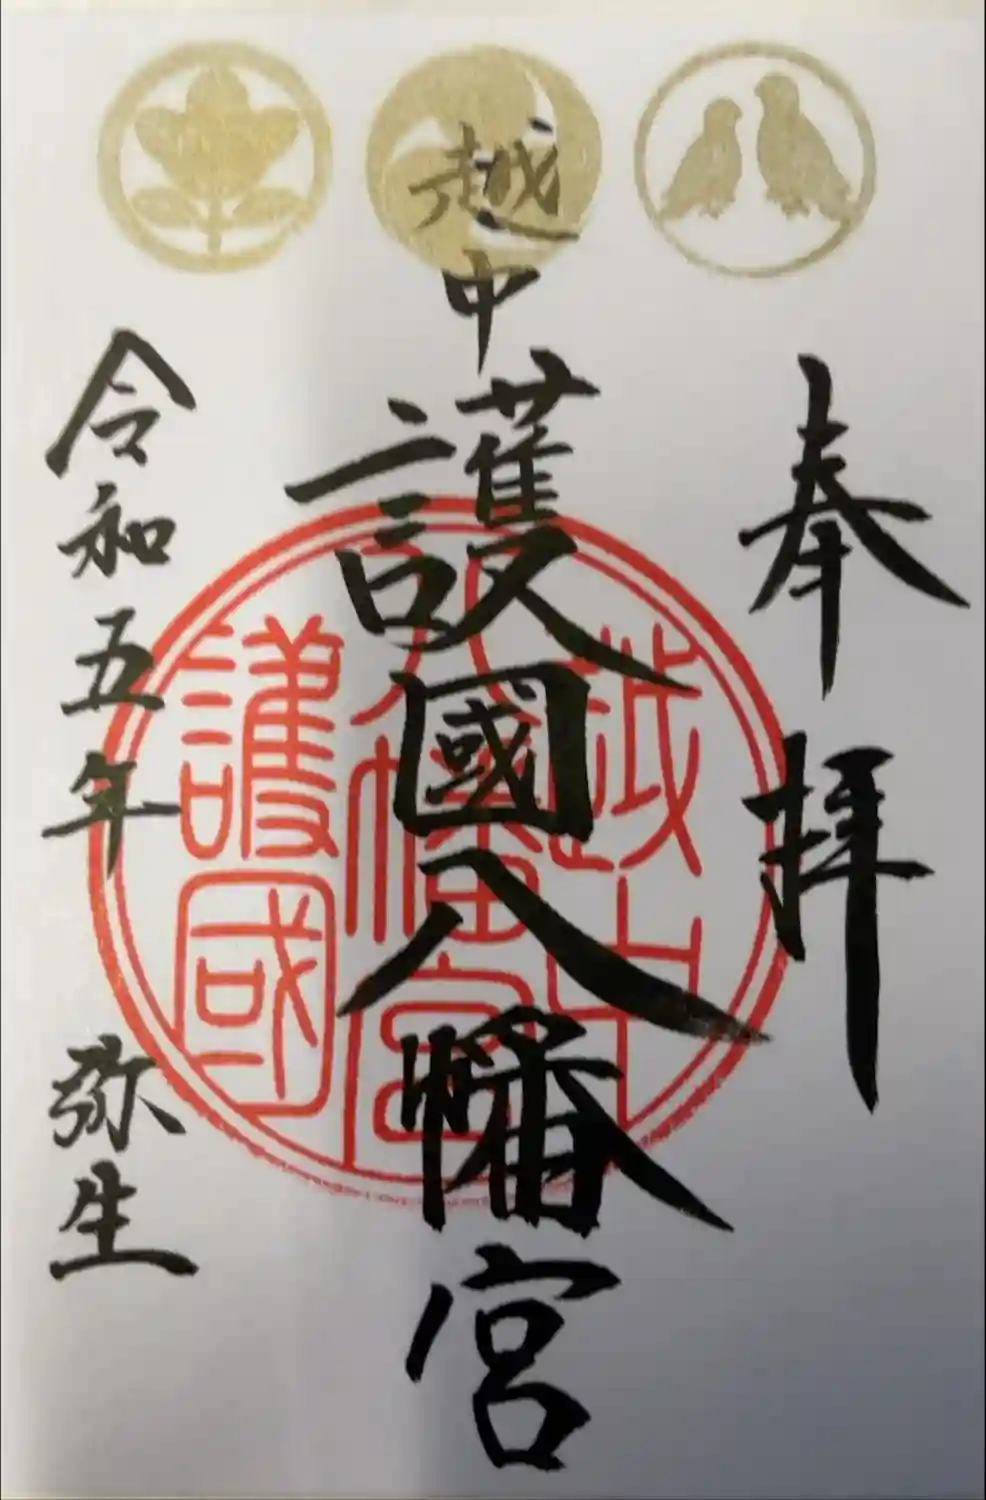 奉拝
越中
護國八幡宮
令和五年 弥生
越中
八幡宮
護國